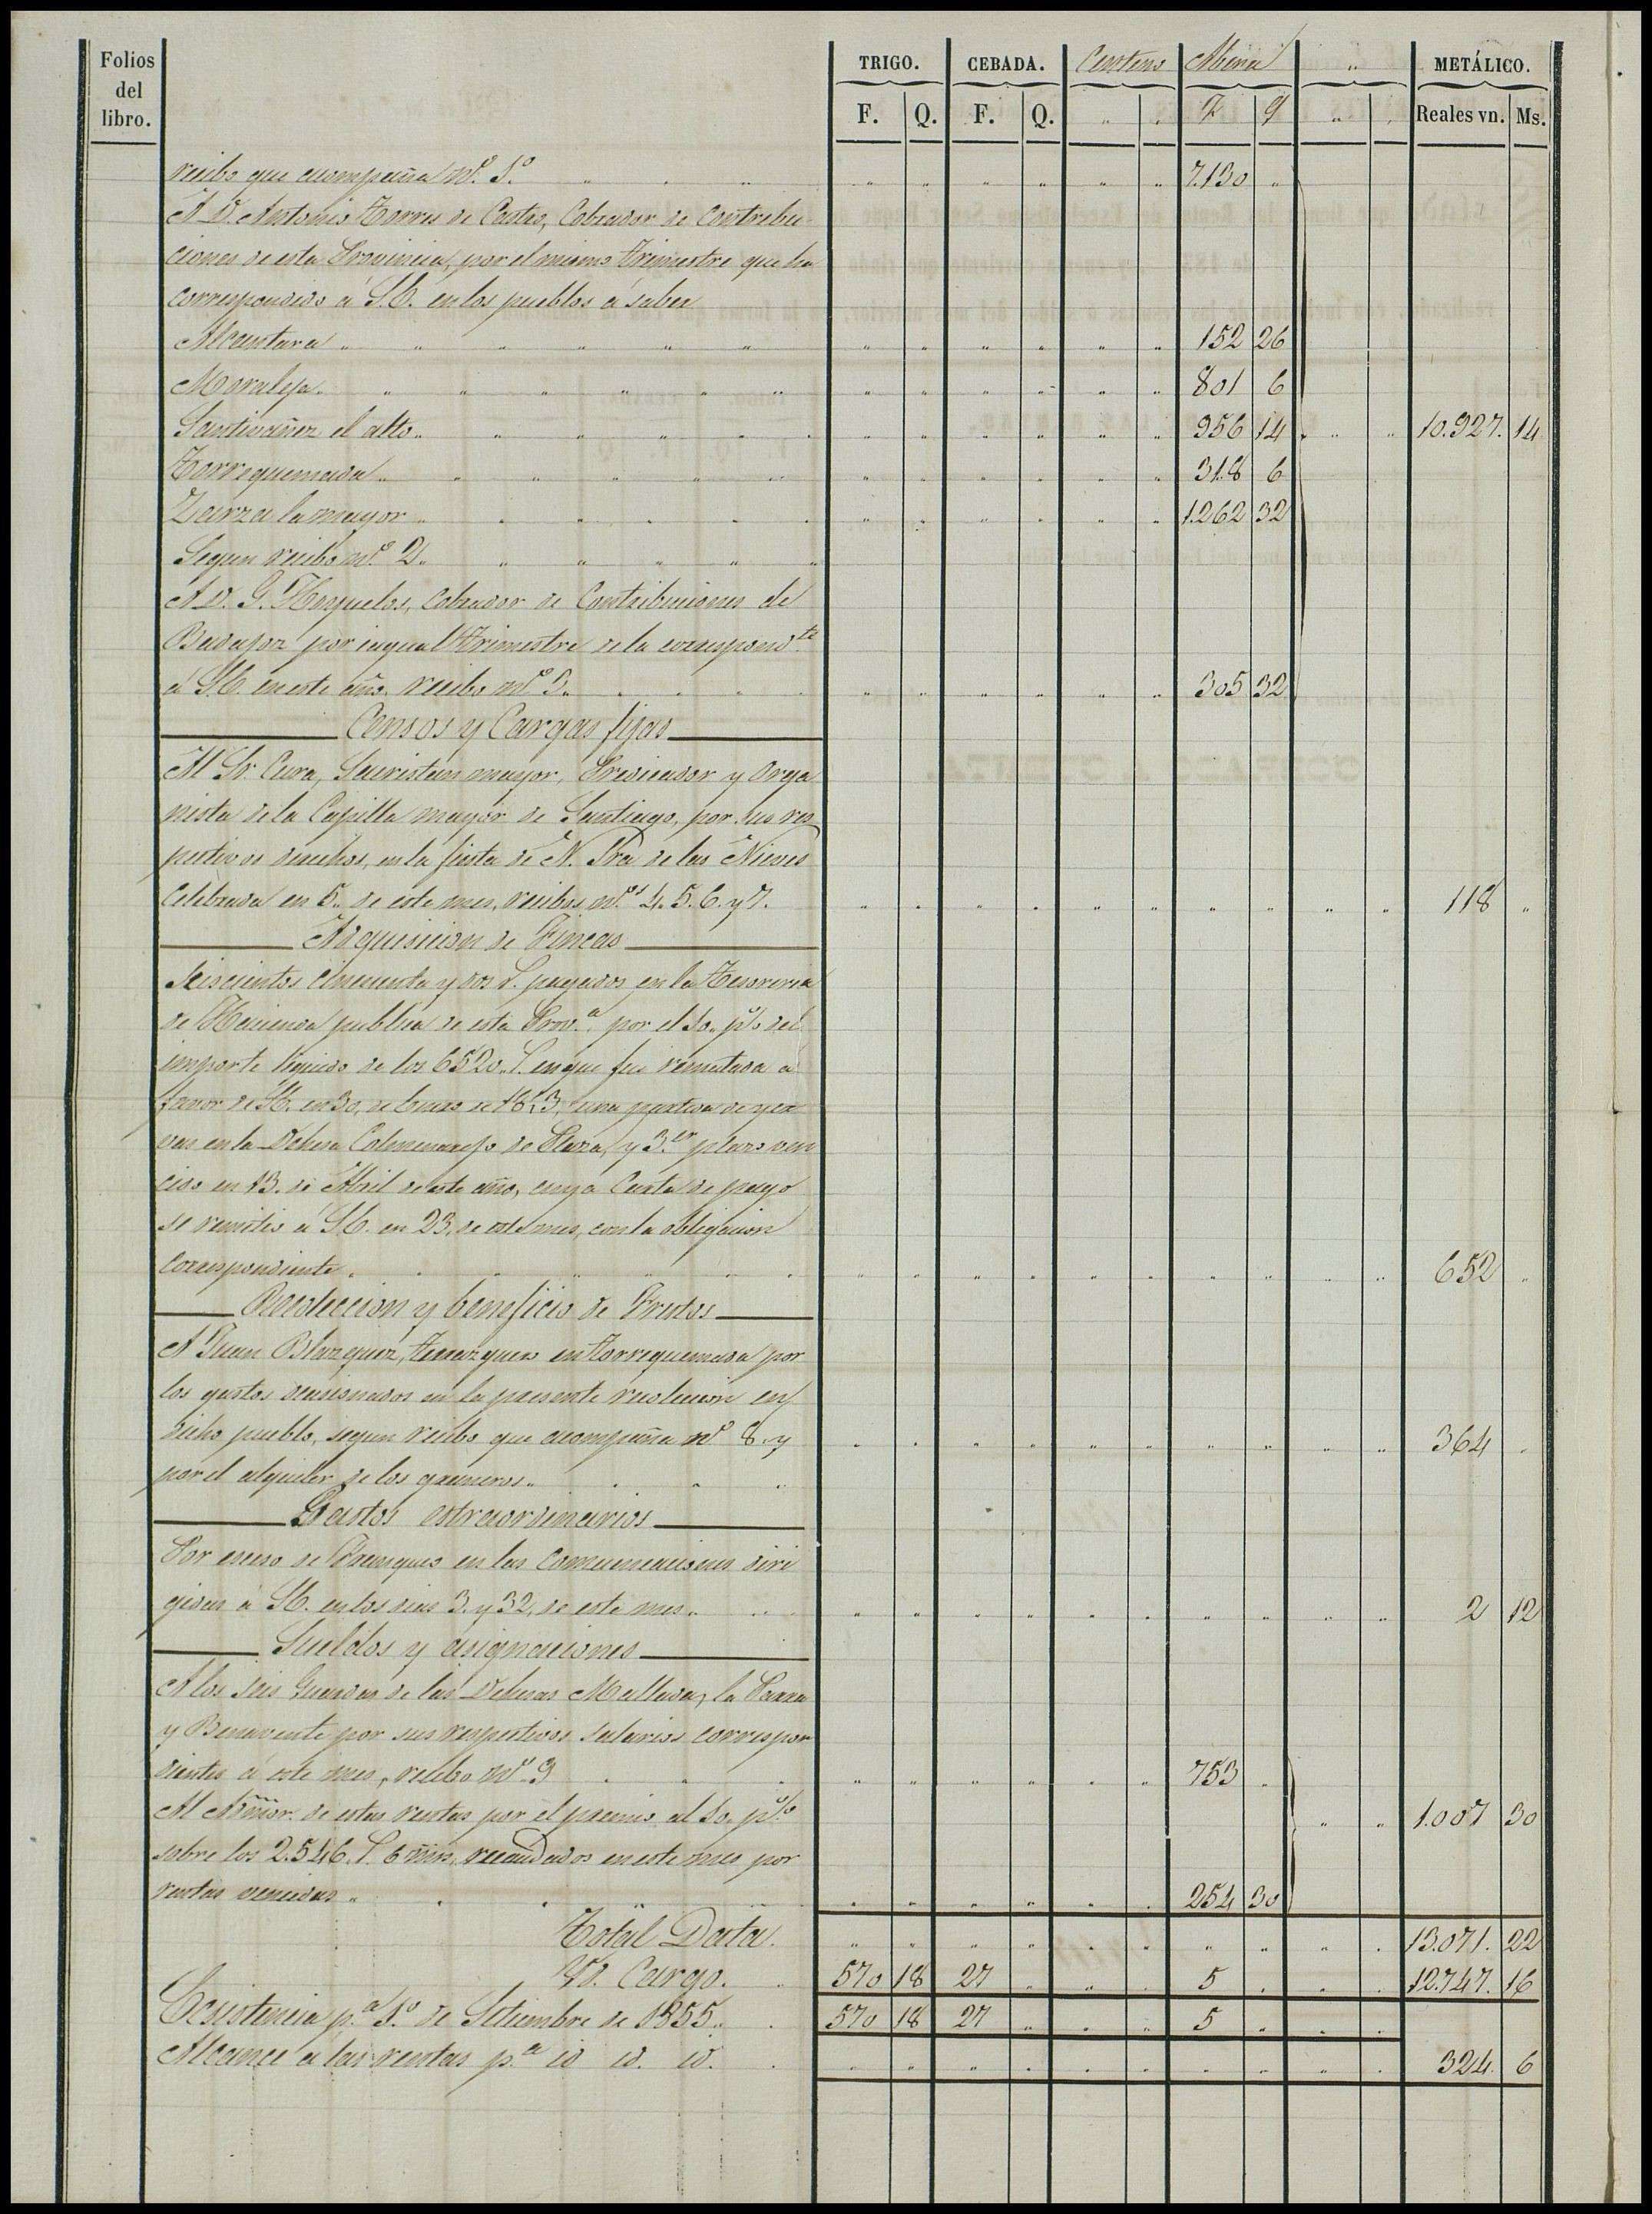 Folios del libro.
TRIGO. CEBADA. Centeno Abena " METÁLICO.
F. Q. F. Q. " " F Q " " Reales vn. Ms.
recibo que acompaña nº 1º " " " " " " " " " 7.130 "
A D. Antonio Torres de Castro, Cobrador de Contribu-
ciones de esta Provincia, por el mismo trimestre que ha
correspondido á S.E. en los pueblos á saber
Alcantara " " " " " " " " " " " " 152 26
Moraleja " " " " " " " " " " " " 801 6
Santivañez el alto " " " " " " " " " " " 956 14 " " 10.927. 14
Torrequemada " " " " " " " " " " " 318 6
Zarza la mayor " " " " " " " " " " " 1.262 32
Segun recibo nº 2 " " " " "
A D. G. Hoyuelos, Cobrador de Contribuciones de
Badajoz por iugual trimestre de la correspondte
á S.E. en este año. recibo nº 3 " " " " " " " " " 305 32
Censos y Cargas fijas
Al Sr. Cura, Sacristan mayor, Predicador y Orga
nista de la Capilla mayor de Santiago, por sus res
pectivos derechos, en la fiesta de N. Sra de las Nieves
Celebrada en 5. de este mes, recibos nos 4. 5. 6. y 7. " " " " " " " " " " 118 "
Adquisicion de Fincas
Seiscientos cincuenta y dos r. pagados en la Tesoreria
de Hacienda publica de esta Prova por el 10. p% del
importe liquido de los 6520. r. en que fue rematada á
favor de S.E. en 30, de Enero de 1853, una partida de yer
vas en la Dehesa Colmenarejo de Plaza, y 3er plazo ven
cido en 13. de Abril de este año, cuya Carta de pago
se remitio á S.E. en 23, de este mes, con la obligacion
correspondiente " " " " " " " " " " " " " 652 "
Recoleccion y beneficio de Frutos
A Juan Blazquez, terazguero en Torrequemada por
los gastos ocasionados en la presente recoleccion en
dicho pueblo, segun recibo que acompaña nº 8. y " " " " " " " " " " 364 "
por el alquiler de los graneros " " " "
Gastos estraordinarios
Por esceso de Franqueo en las comunicaciones diri
gidas á S.E. en los dias 3. y 32, de este mes " " " " " " " " " " " 2 12
Sueldos y asignaciones
A los seis Guardas de las Dehesas Mallada, la Parra
y Benavente por sus respectivos salarios correspon
dientes á este mes, recibo nº 9 " " " " " " " 753 "
Al Admor. de estas rentas por el premio al 10. p% " " 1.007 30
sobre los 2.546. r. 6 mrs. recaudados en este mes por
rentas vencidas " " " " " " " " " 254 30
Total Data. " " " " " " " " " " 13.071. 22
Yd. Cargo. 570 18 27 " " " 5 " " " 12.747. 16
Ecsistencia pa 1º de Setiembre de 1855 " 570 18 27 " " " 5 " " "
Alcance á las rentas pa id id. id. " " " " " " " " " " 324 6